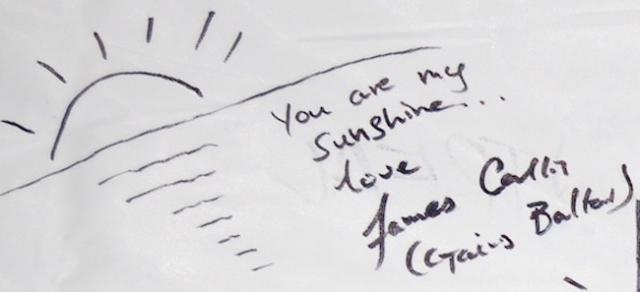 You are my
sunshine...
love
James Callis
(Gaius Baltar)